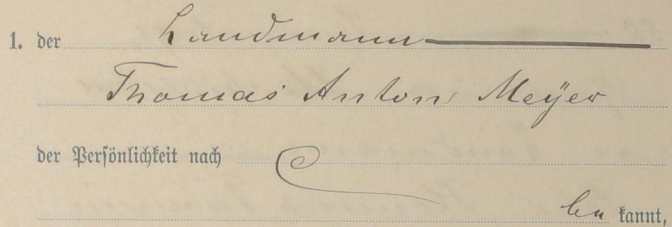 1. der Landmann
Thomas Anton Meÿer
der Persönlichkeit nach
be kannt,